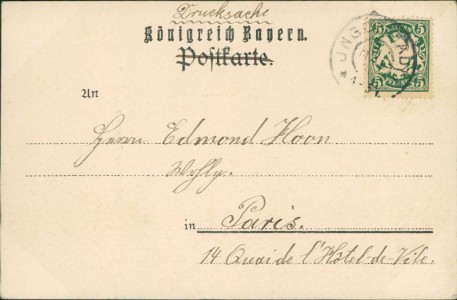 Drucksache
Königreich Bayern.
Postkarte.
5 5
An
Herrn Edmond Hoon
Wohlg.
in Paris.
14 Quai de l'Hotel-de-Vile.